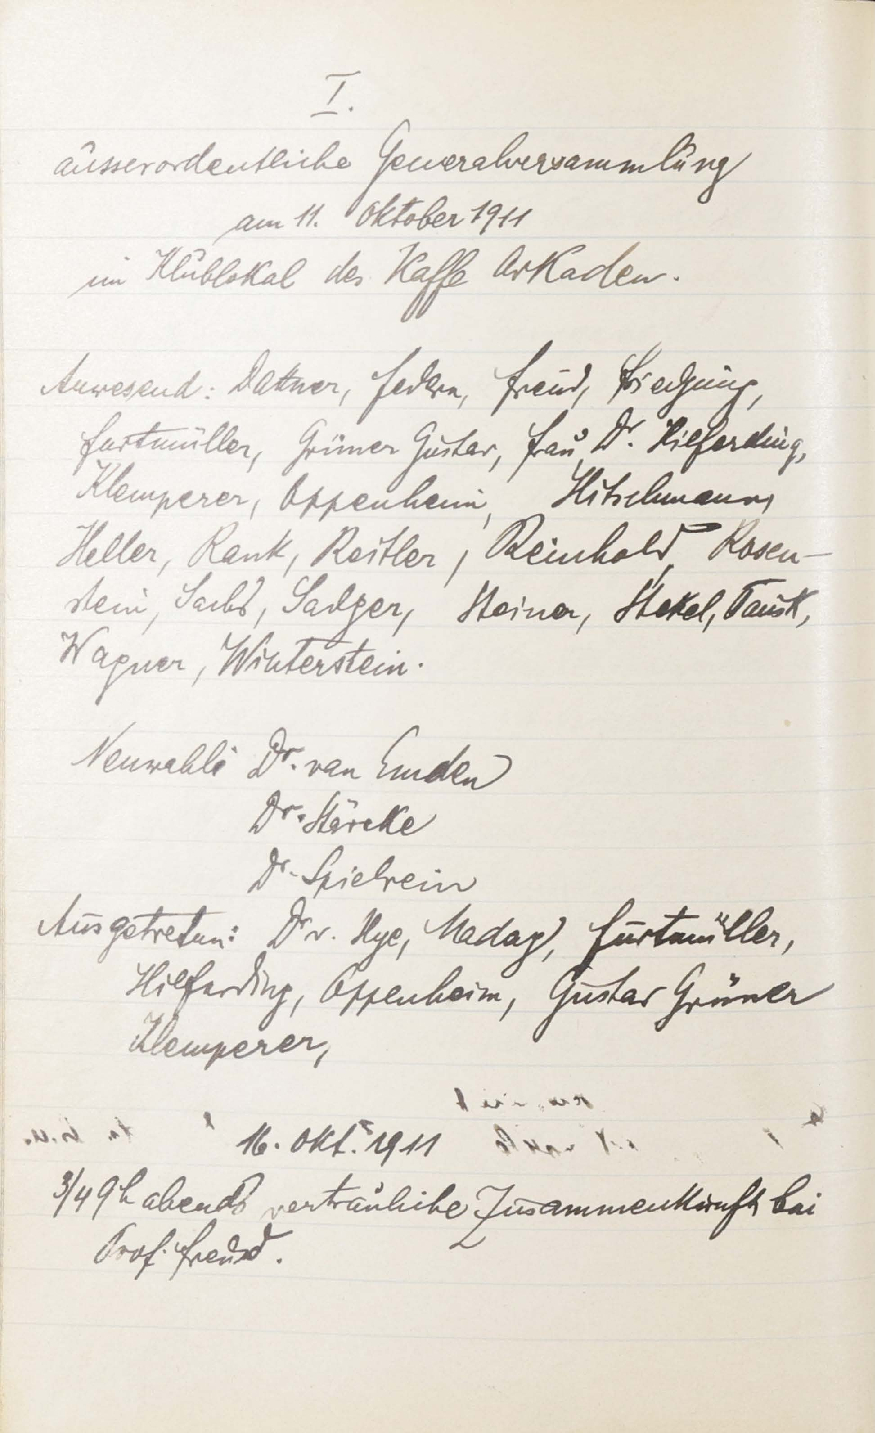 I.
ausserordentliche Generalversammlung
am 11. Oktober 1911
im Klublokal des Kaffe Arkaden.
Anwesend: Dattner, Federn, Freud, Friedjung,
Furtmüller, Grüner Gustav, Frau Dr. Hilferding,
Klemperer, Oppenheim, Hitschmann,
Heller, Rank, Reitler, Reinhold, Rosen-
stein, Sachs, Sadger, Steiner, Stekel, Tausk,
Wagner, Winterstein.
Neuwahl: Dr. van Emden
Dr. Stärcke
Dr. Spielrein
Ausgetreten: Dr v. Hye, Maday, Furtmüller,
Hilferding, Oppenheim, Gustav Grüner
Klemperer,
16. Okt. 1911
3/4 9h abends vertrauliche Zusammenkunft bei
Prof. Freud.